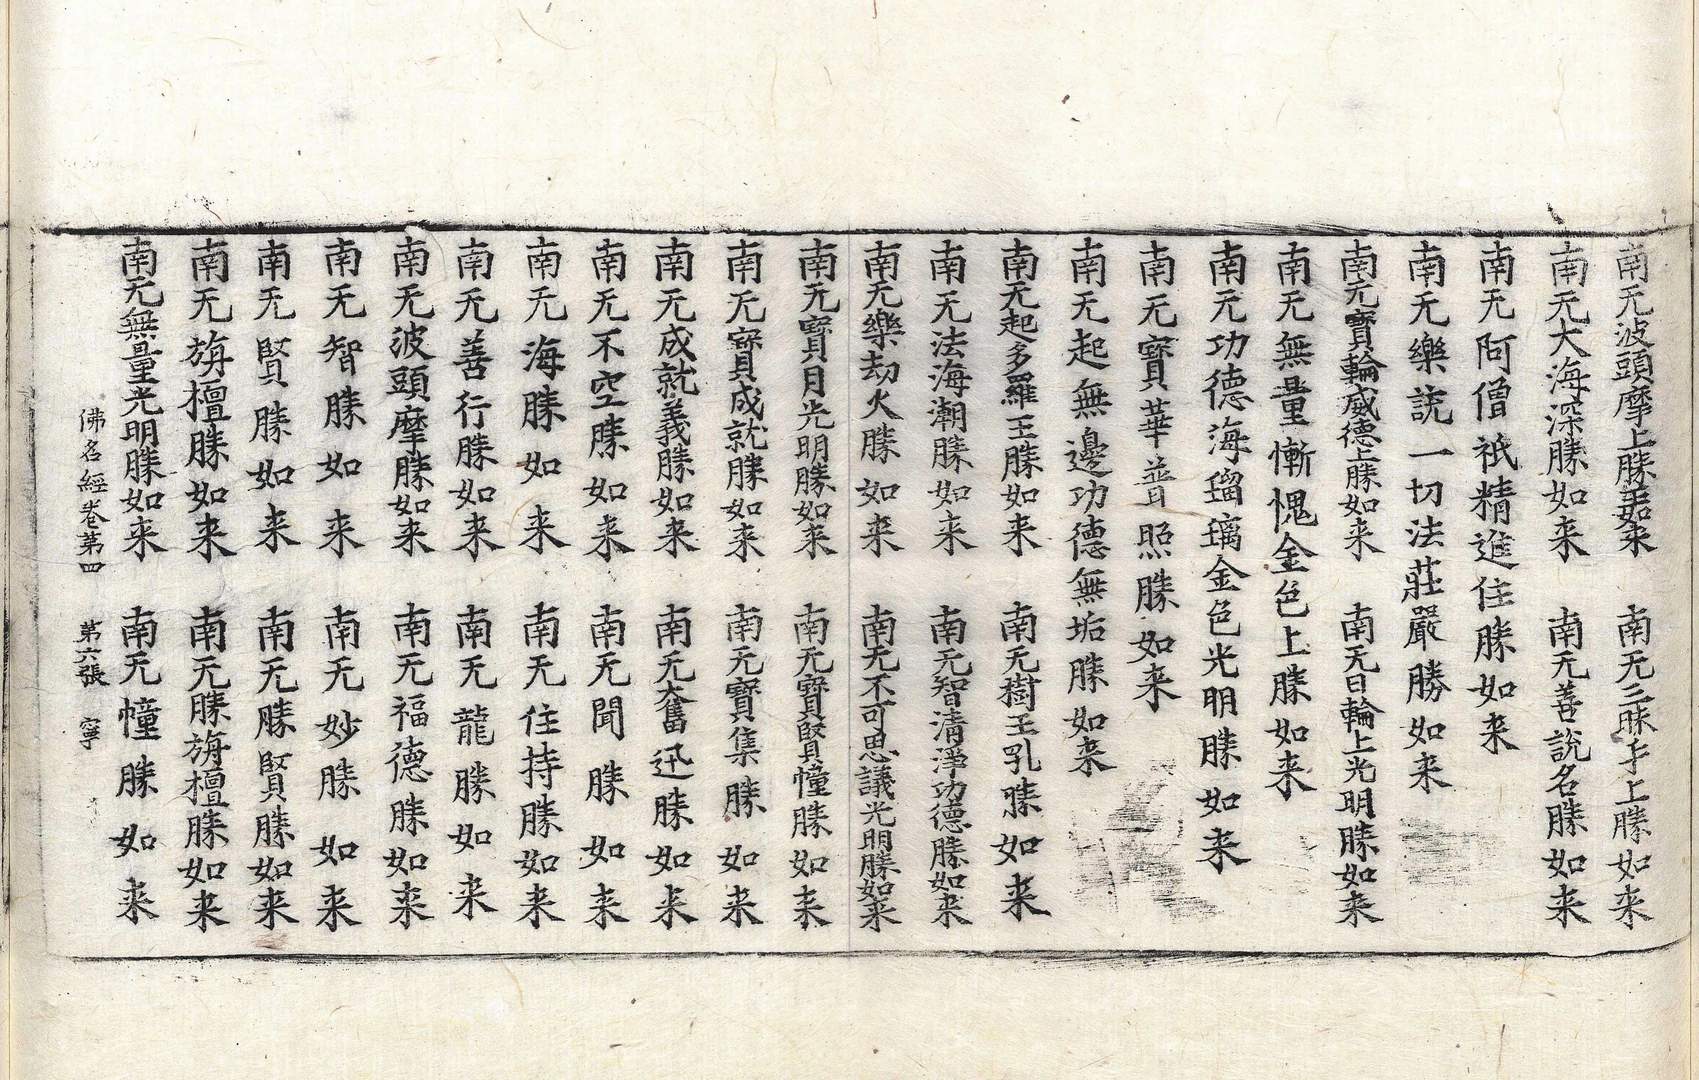 南无波頭摩上勝如来 南无三昧手上勝如来
南无大海深勝如来 南无善說名勝如来
南无阿僧祇精進住勝如来
南无樂説一切法莊嚴勝如来
南无寶輪威德上勝如来 南无日輪上光明勝如来
南无無量慚愧金色上勝如来
南无功德海瑠璃金色光明勝如来
南无寶華普照勝如来
南无起無邊功德無垢勝如来
南无起多羅王勝如来 南无樹王乳勝如来
南无法海潮勝如来 南无智清淨功德勝如来
南无樂劫火勝如来 南无不可思議光明勝如来
南无寶月光明勝如来 南无寶賢幢勝如来
南无寶成就勝如来 南无寶集勝如来
南无成就義勝如来 南无奮迅勝如来
南无不空勝如来 南无聞勝如来
南无海勝如来 南无住持勝如来
南无善行勝如来 南无龍勝如来
南无波頭摩勝如来 南无福德勝如来
南无智勝如来 南无妙勝如来
南无賢勝如来 南无勝賢勝如来
南无旃檀勝如来 南无勝旃檀勝如来
南无無量光明勝如来 南无幢勝如来
佛名經卷第四 第六張 寧